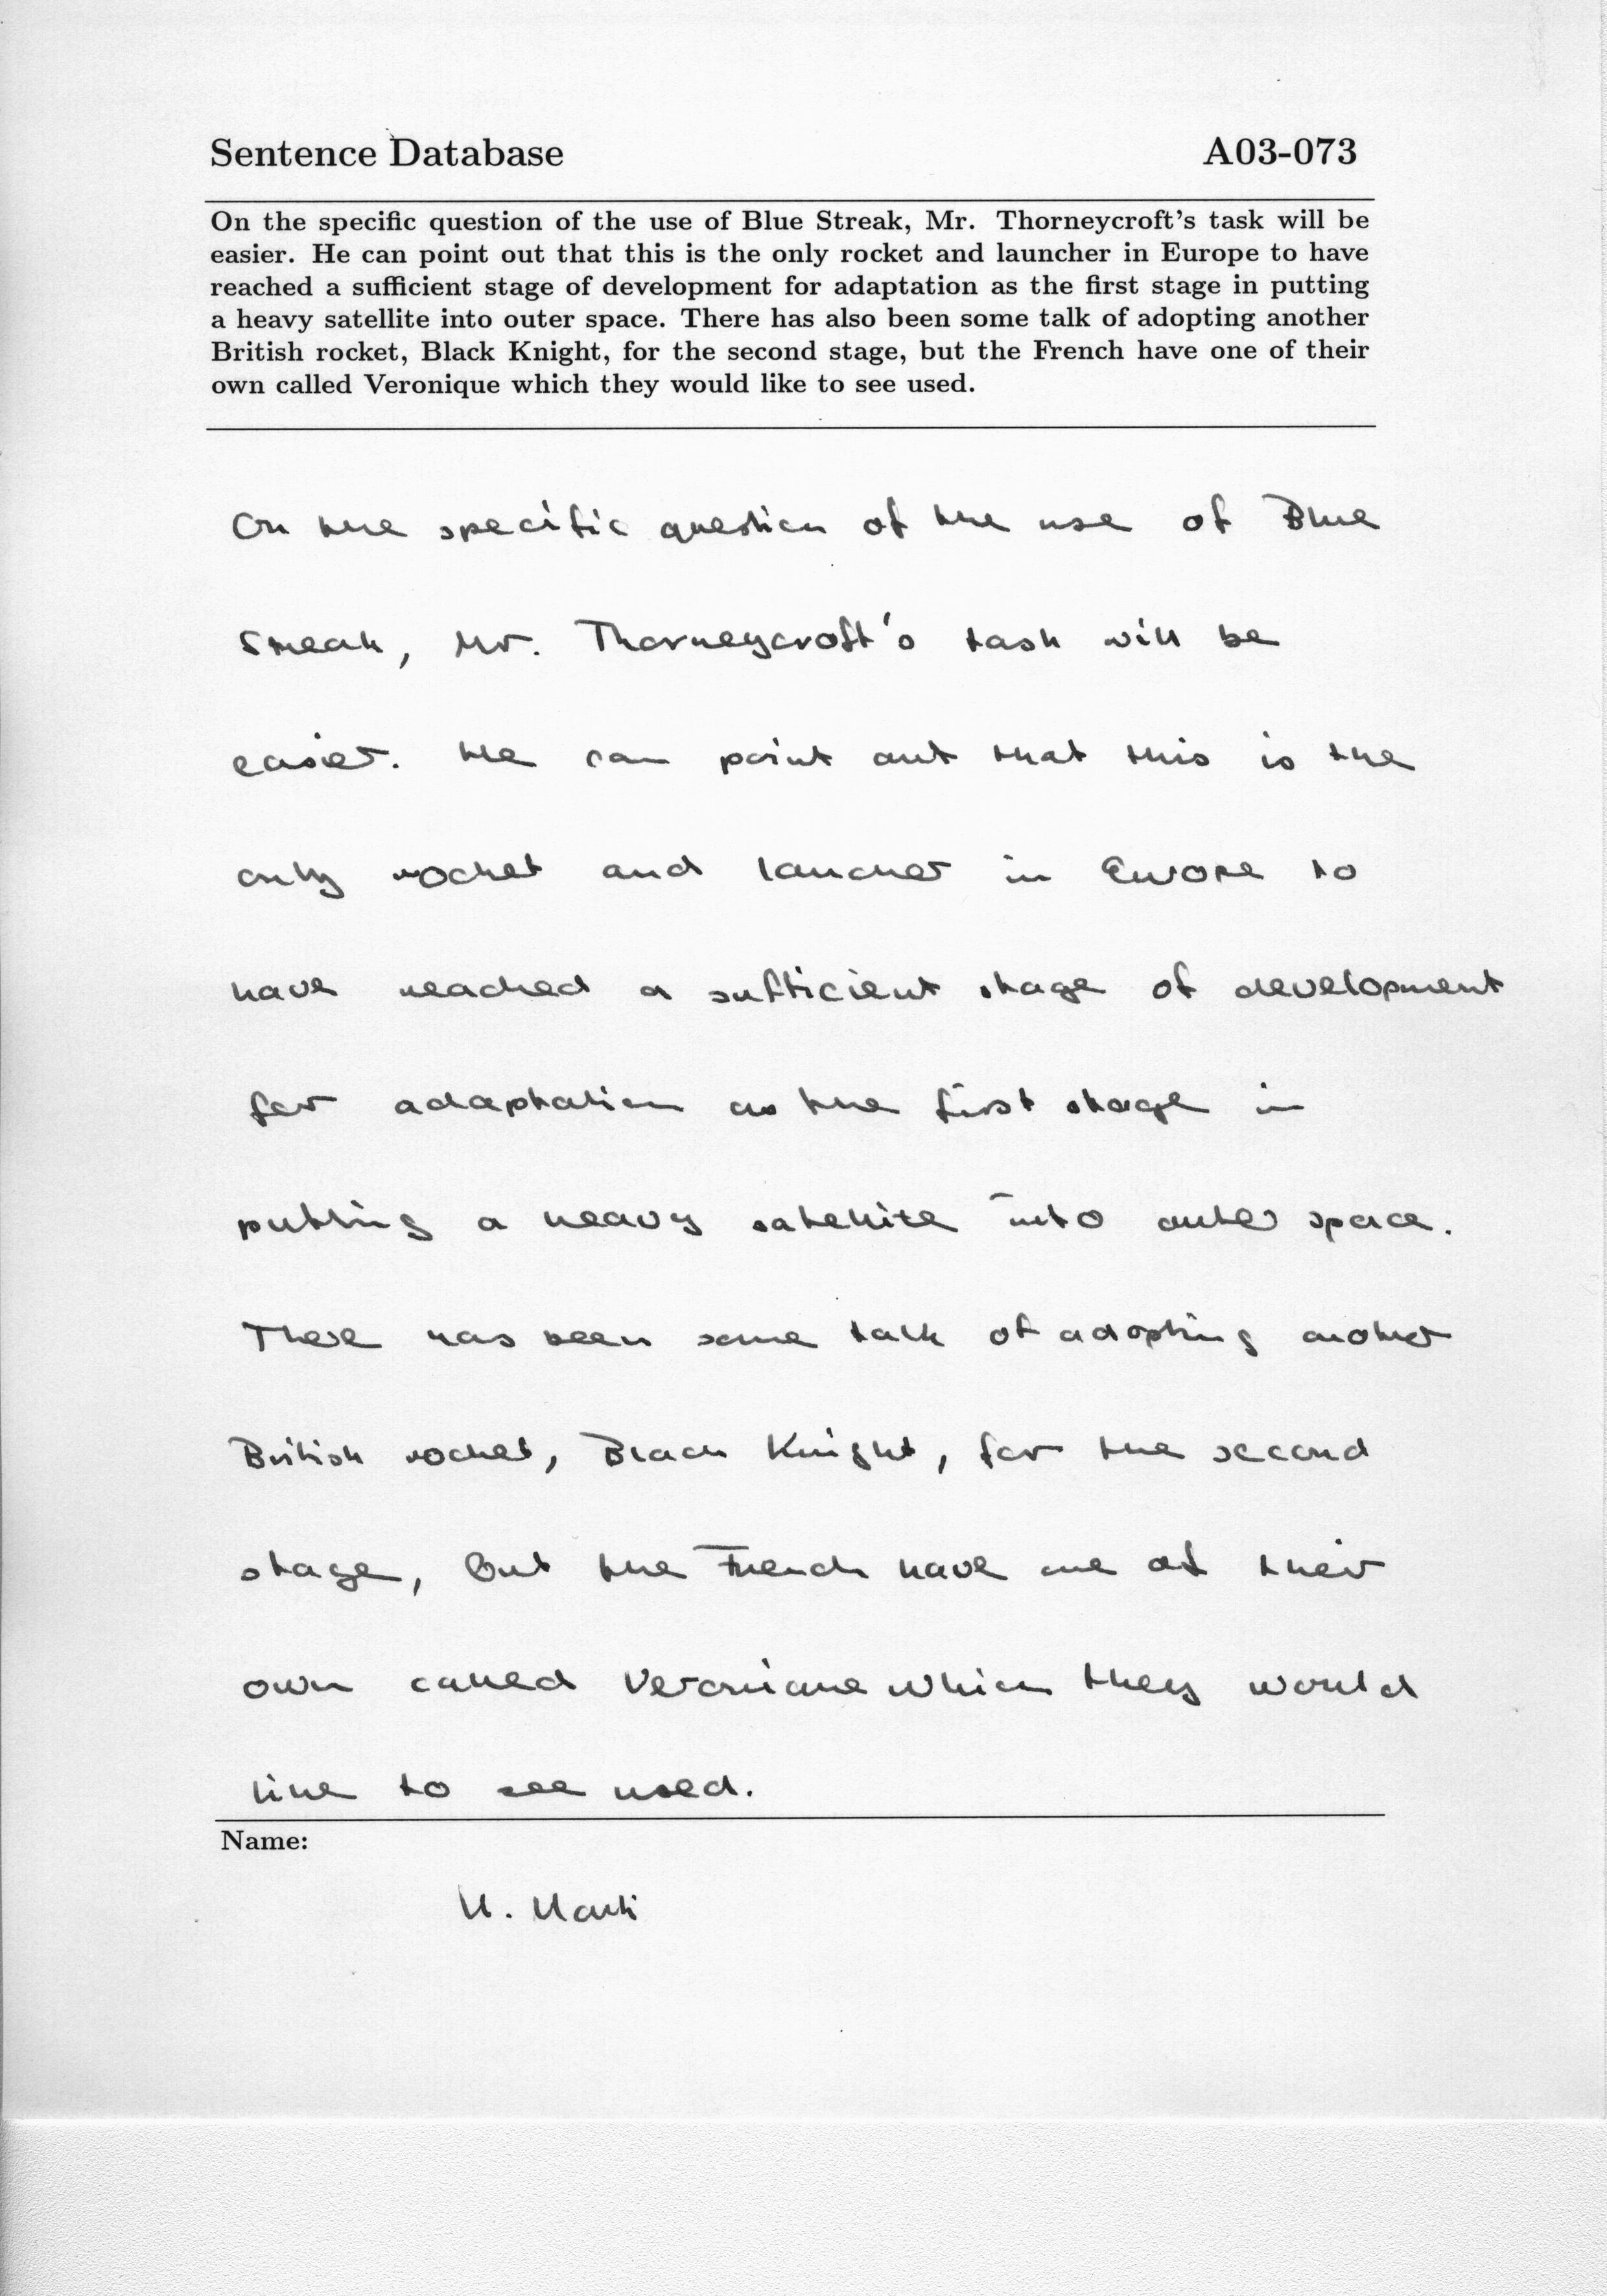 Sentence Database A03-073
On the specific question of the use of Blue Streak, Mr. Thorneycroft's task will be
easier. He can point out that this is the only rocket and launcher in Europe to have
reached a sufficient stage of development for adaptation as the first stage in putting
a heavy satellite into outer space. There has also been some talk of adopting another
British rocket, Black Knight, for the second stage, but the French have one of their
own called Veronique which they would like to see used.
On the specific question of the use of Blue
Streak, Mr. Thorneycroft's task will be
easier. He can point out that this is the
only rocket and launcher in Europe to
have reached a sufficient stage of development
for adaptation as the first stage in
putting a heavy satellite into outer space.
There has been some talk of adopting another
British rocket, Black Knight, for the second
stage, but the French have one of their
own called Veronique which they would
like to see used.
Name:
U. Marti